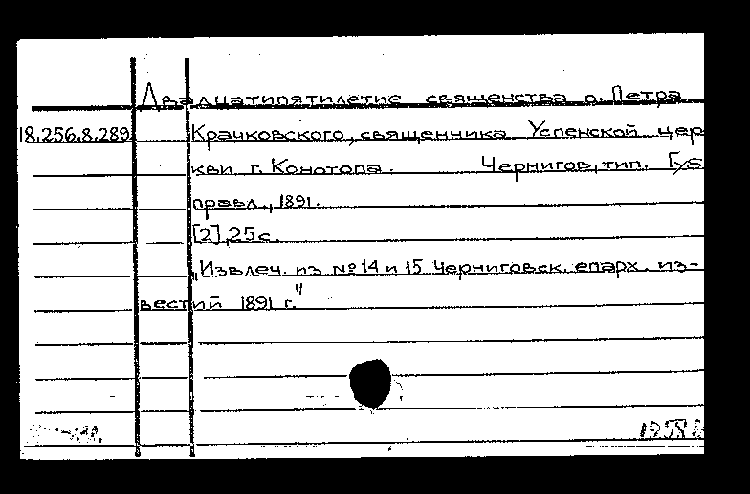 Двадцатипятилетие священства о. Петра
18.256.8.289. Крачковского, священника Успенской цер
кви г. Конотопа. Чернигов, тип. Губ
правл., 1891.
[2], 25 с.
„Извлеч. из №14 и 15 Черниговск. епарх. из-
вестий 1891 г."